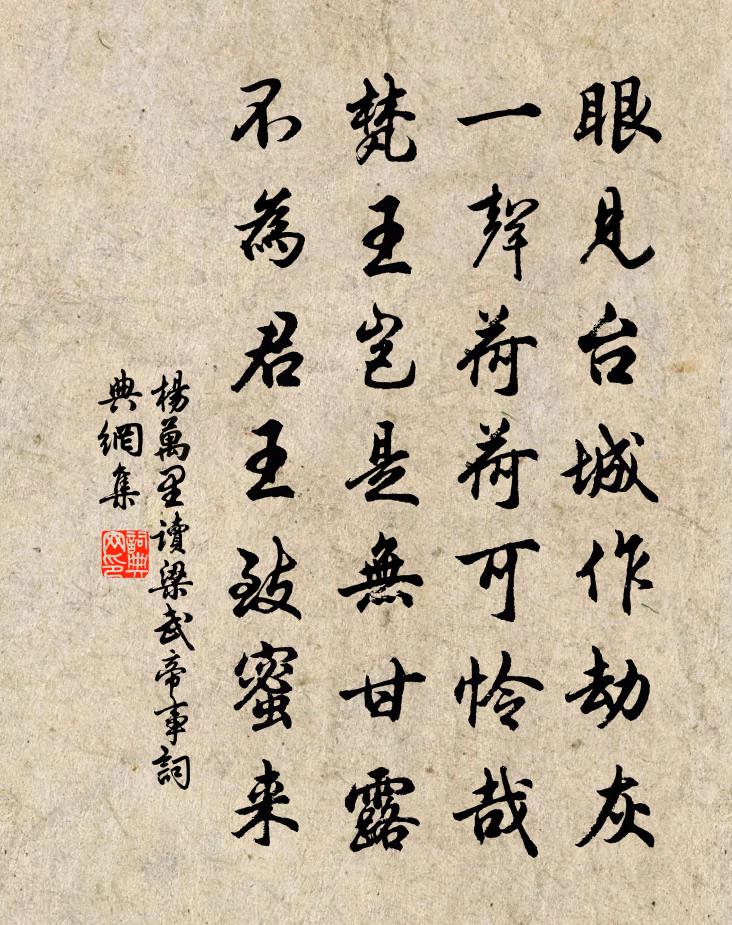 眼見台城作劫灰
一聲荷荷可怜哉
梵王豈是無甘露
不為君王致蜜来
楊萬里讀梁武帝事詞
典網集
詞典
网印